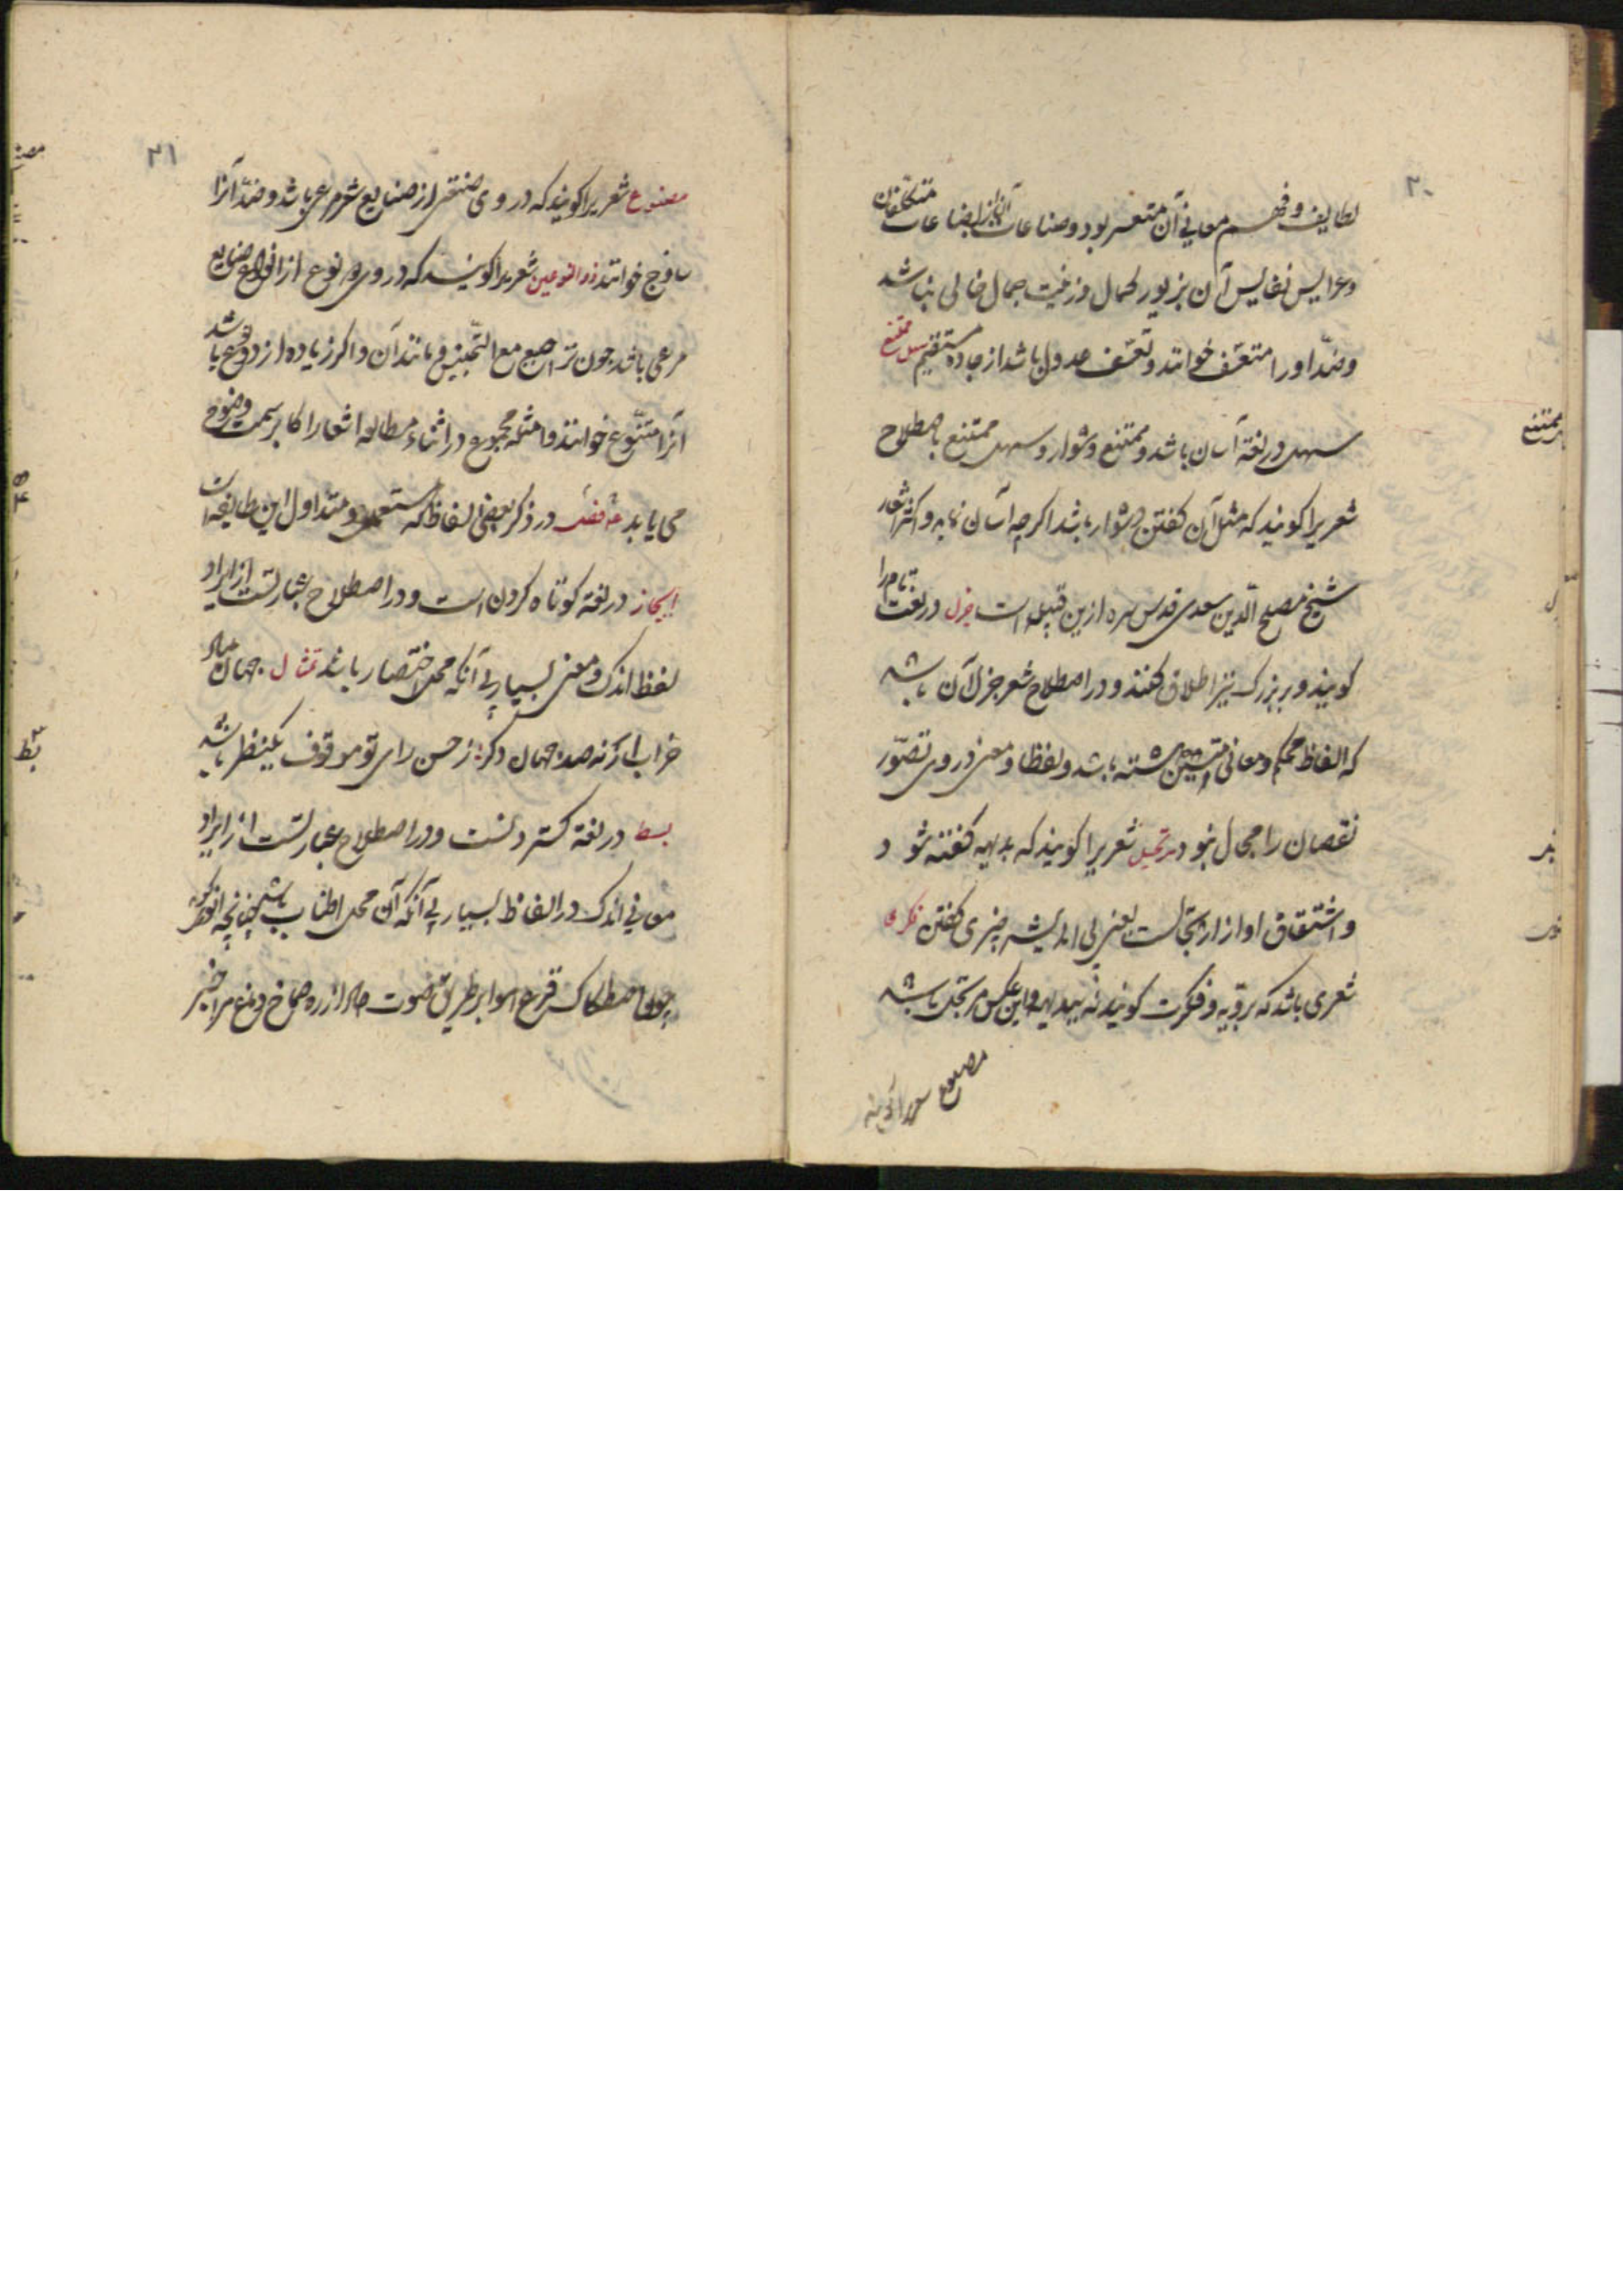 ۲۰
لطایف و فهم معانی آن متعسر بود و صناعات
وعرایس نفایس آن بزیور کمال و زینت جمال خالی نباشد
و ضدّ او را متعسّف خوانند و تعسّف عدول باشد از جاده مستقیم سهل ممتنع
سهل در لغة آسان باشد و ممتنع دشوار و سهل ممتنع باصطلاح
شعریرا کویند که مثل آن کفتن دشوار باشد اکرچه آسان نماید و اکثر اشعار
شیخ مصلح الدین سعدی قدس سره ازین قبیل است جزل در لغت تمام را
کویند و بر بزرک نیز اطلاق کنند و در اصطلاح شعر جزل آن باشد
که الفاظ محکم و معانی متین داشته باشد و لفظا و معنی در وی تصوّر
نقصان را مجال نبود مرتجل شعریرا کویند که بدیهه کفته شود
و اشتقاق او از ارتجالست یعنی بی اندیشه چیزی کفتن فکری
شعری باشد که برویّه و فکرت کویند نه ببدیهه و این عکس مرتجل باشد
مصنوع شعریرا کویند
ممتنع
۲۱
مصنوع شعریرا کویند که در وی صنعتی از صنایع شعر مرعی باشد و ضدّ آنرا
ساذج خوانند ذو النوعین شعریرا کویند که در وی دو نوع از انواع صنایع
مرعی باشد چون ترصیع مع التجنیس و مانند آن و اکر زیاده از دو نوع باشد
آنرا متنوّع خوانند و امثله مجموع در اثناء مطالعه اشعار اکابر سمت وضوح
می یابد در ذکر بعضی الفاظ که مستعمل و متداول این طایفه است
ایجاز در لغة کوتاه کردن است و در اصطلاح عبارتست از ایراد
لفظ اندک و معنی بسیار بی آنکه محل اختصار باشد مثال جهان
خراب ارنه صد جهان دکر ز حسن رای تو موقوف یکنظر باشد
بسط در لغة کستردنست و در اصطلاح عبارتست از ایراد
معانی اندک در الفاظ بسیار بی آنکه آن محل اطناب باشد چنانچه
اصطکاک قرع هوا بر طریق صوت از ره صماخ دماغ مرا خبر